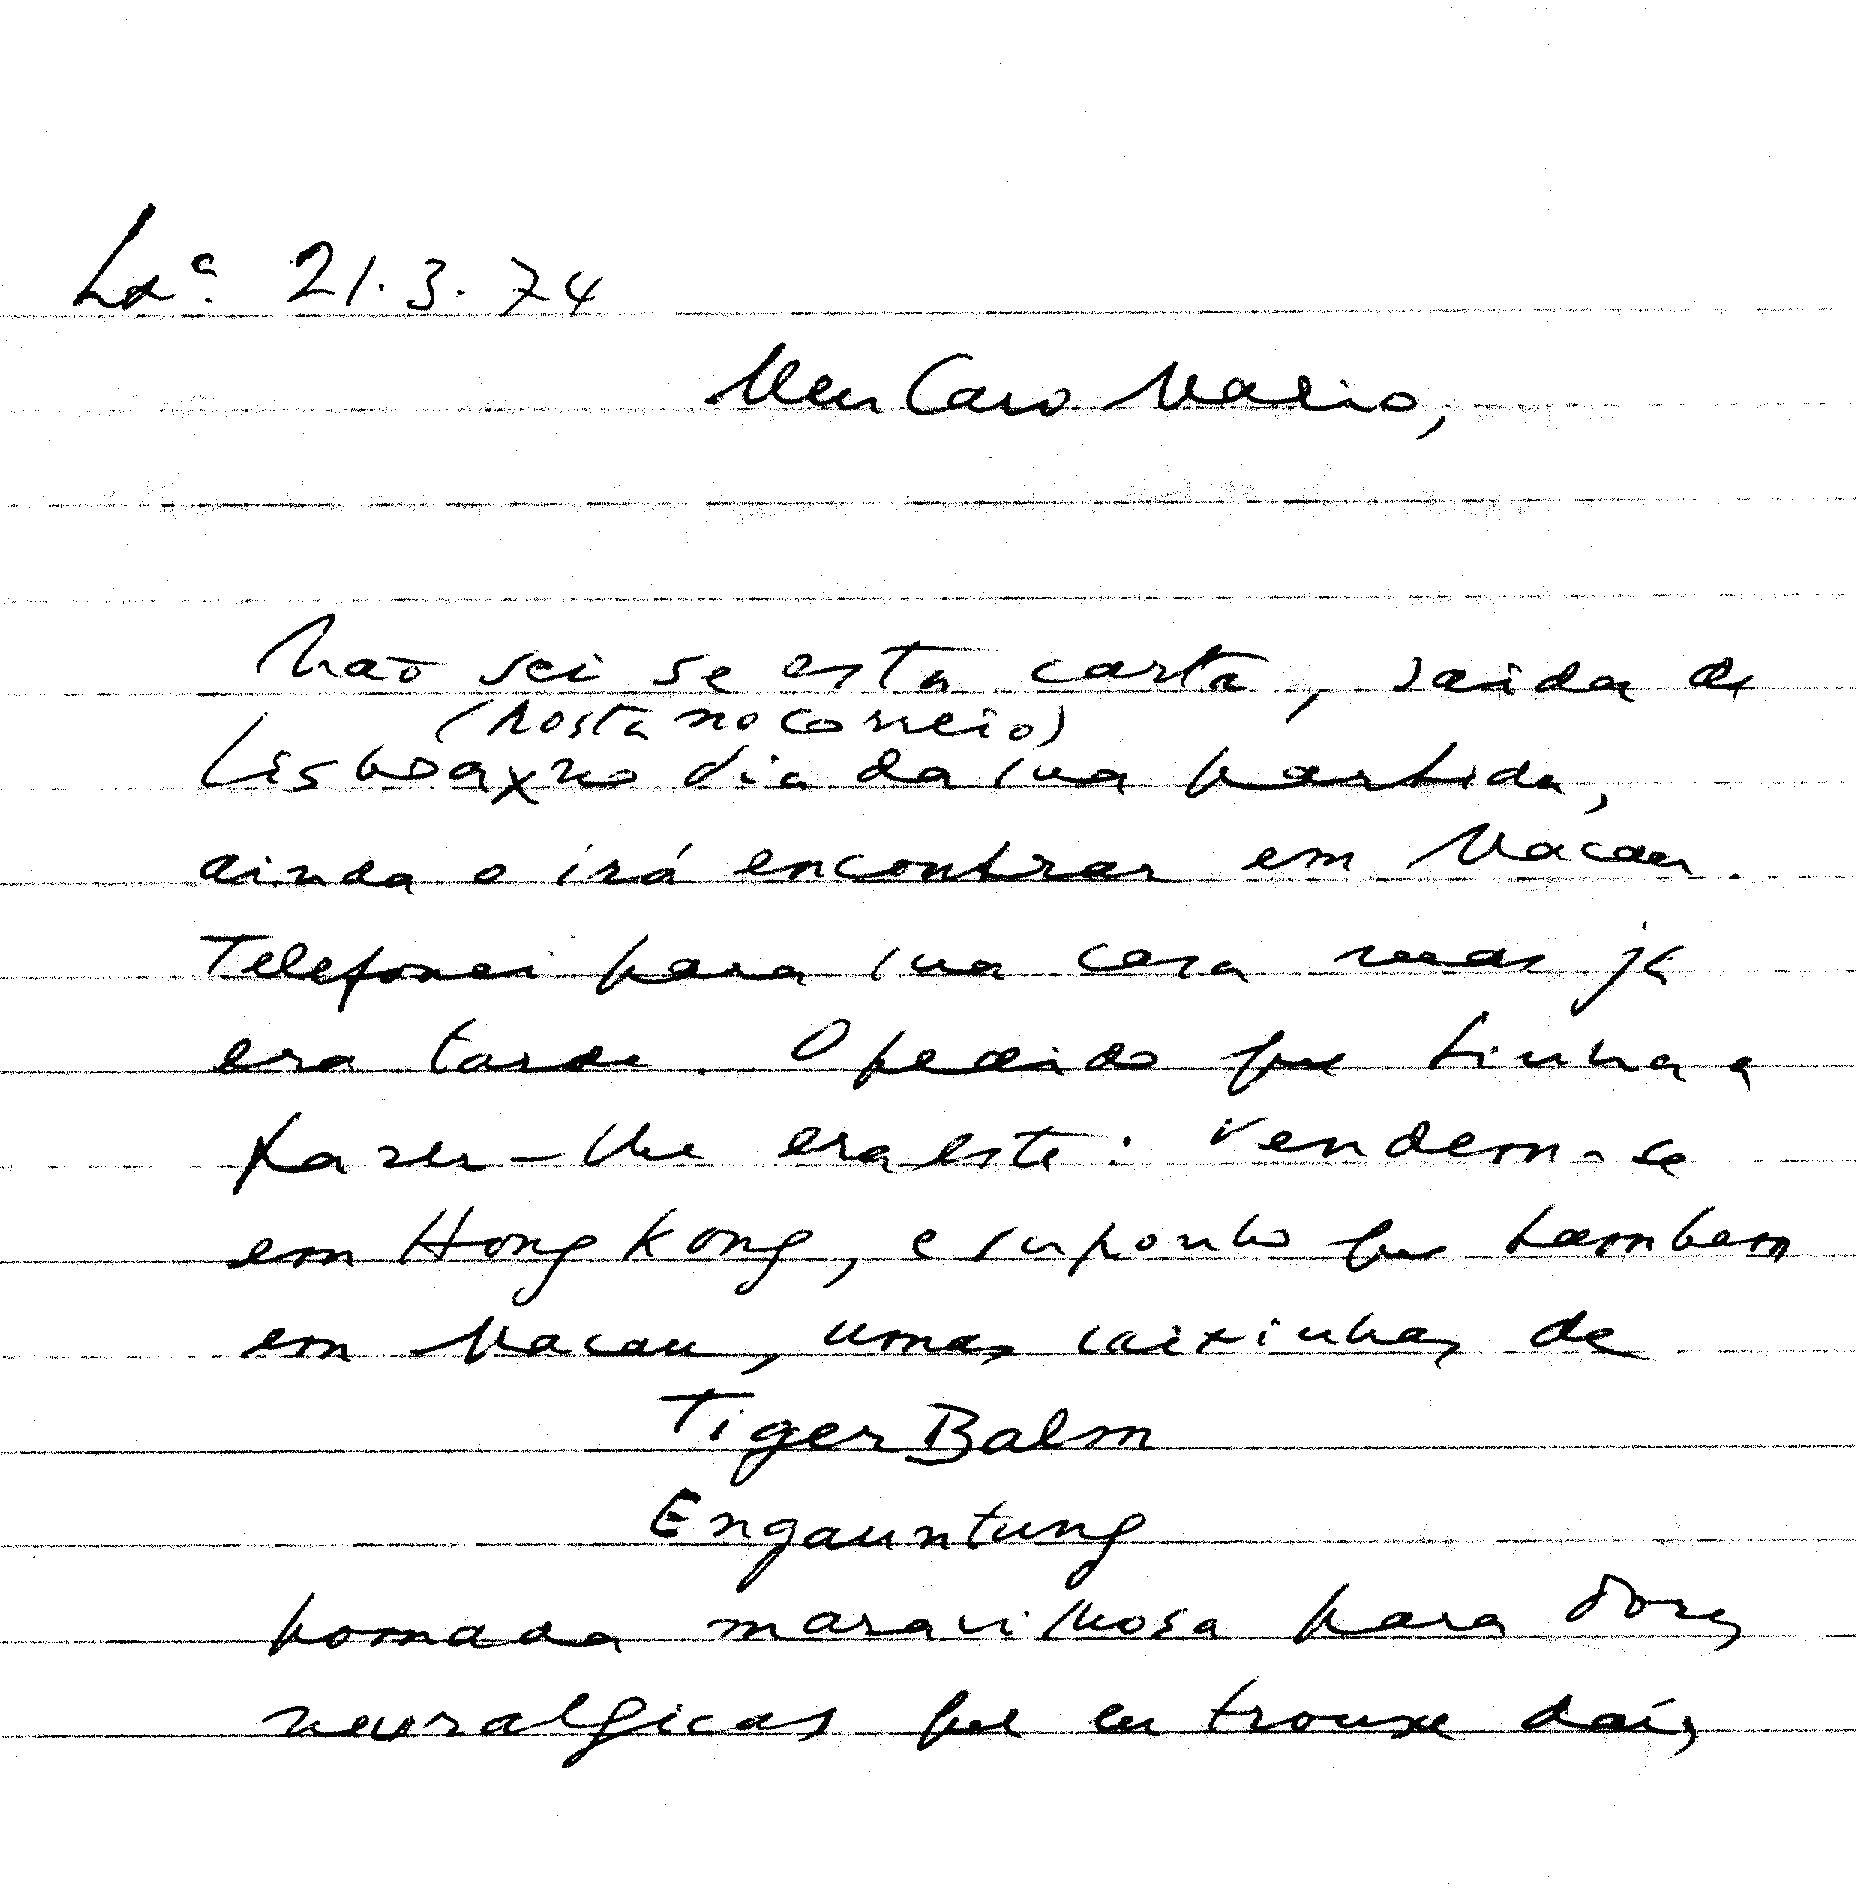 Lxª. 21.3.74
Meu Caro Mario,
Não sei se esta carta, saida de
(posta no correio)
Lisboa x no dia da sua partida,
ainda o irá encontrar em Macau.
Telefonei para sua casa mas já
era tarde. O pedido que tinha a
fazer-lhe era este: vendem-se
em Hong Kong, e suponho que tambem
em Macau, umas caixinhas de
Tiger Balm
Engauntung
pomada maravilhosa para dores
nevralgicas que eu trouxe daí,